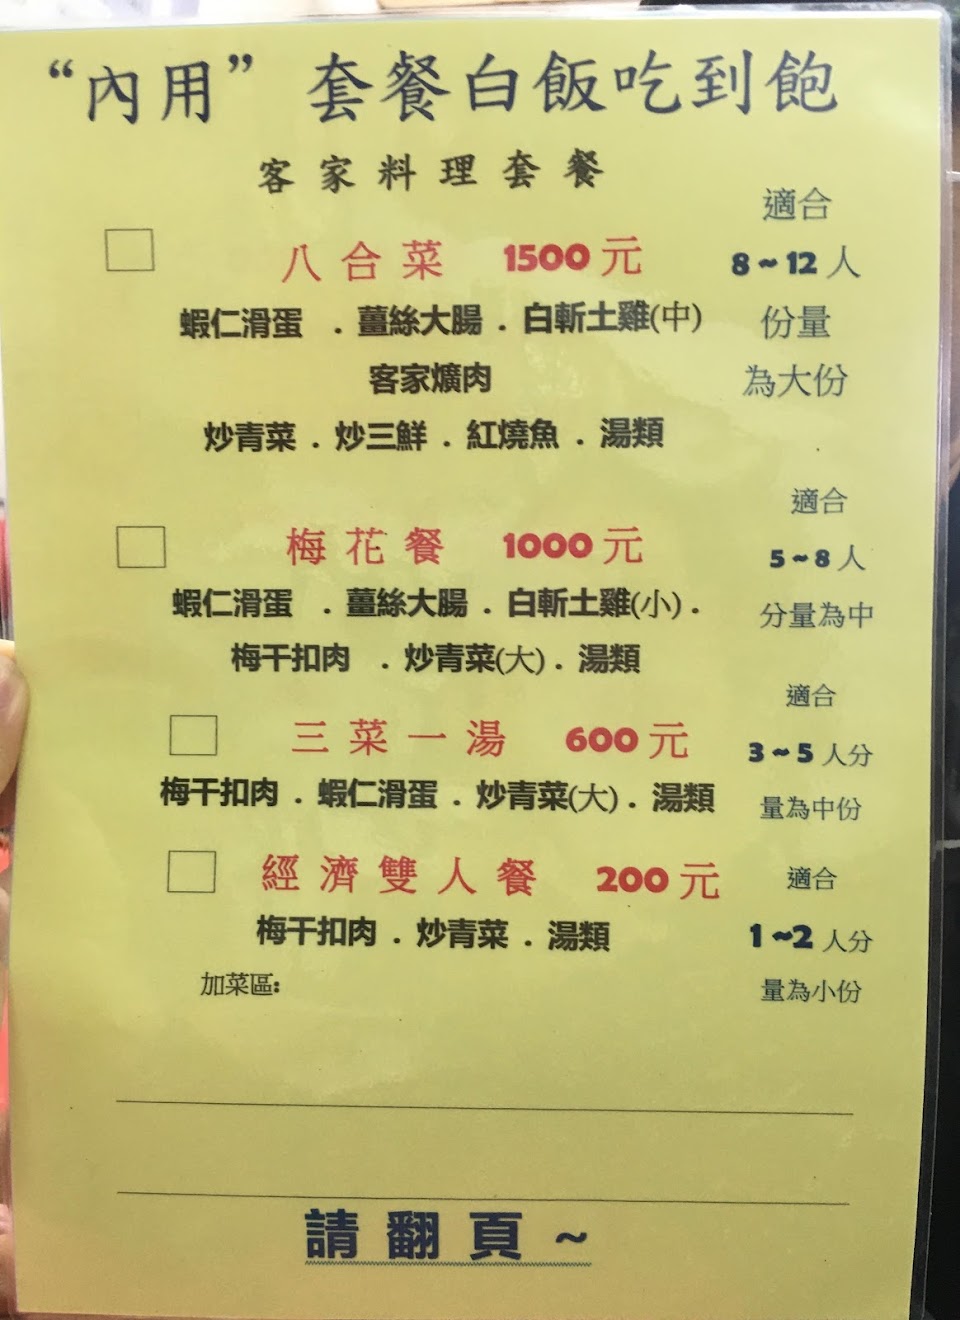 “內用” 套餐白飯吃到飽
客家料理套餐
適合
八合菜 1500元 8~12人
蝦仁滑蛋 . 薑絲大腸 . 白斬土雞(中) 份量
客家爌肉 為大份
炒青菜 . 炒三鮮 . 紅燒魚 . 湯類
適合
梅花餐 1000元 5~8人
蝦仁滑蛋 . 薑絲大腸 . 白斬土雞(小) . 分量為中
梅干扣肉 . 炒青菜(大) . 湯類
適合
三菜一湯 600元 3~5人分
梅干扣肉 . 蝦仁滑蛋 . 炒青菜(大) . 湯類 量為中份
經濟雙人餐 200元 適合
梅干扣肉 . 炒青菜 . 湯類 1~2人分
加菜區: 量為小份
請翻頁~